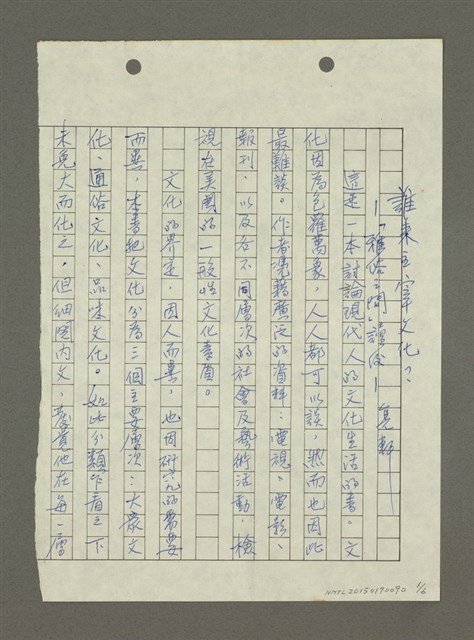 誰來主宰文化?
—「雅俗之間」譯後—　亮軒
這是一本討論現代人的文化生活的書。文
化因為包羅萬象，人人都可以談，然而也因此
最難談。作者憑藉廣泛的資料：電視、電影、
報刊、以及各不同層次的社會及藝術活動，檢
視在美國的一般性文化素質。
文化的界定，因人而異，也因研究的需要
而異，本書把文化分為三個主要層次：大眾文
化、通俗文化、品味文化。如此分類乍看之下
未免大而化之，但細閱內文，發覺他在每一層
NMTL20150190090 1/6